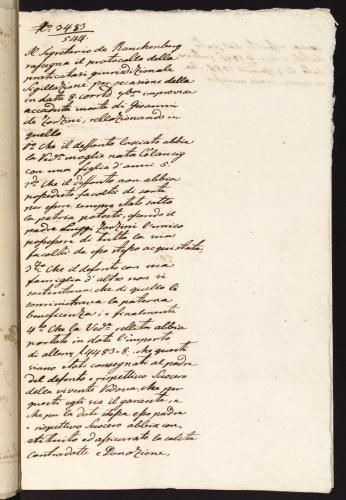 No. 3483
544.
Il Segretario de Rauchenberg
rassegna il protocollo della
praticatasi giurisdizionale
Sigillazione per occasione della
in data 8 corrte improvisa
accaduta morte di Giovanni
de Zorzini, rellazionando in
quello
1o. Che il deffonto lasciato abbia
la Vedva moglie nata
con una figlia d'anni 5.
2do. Che il deffonto non abbia
possedute facoltà di sorte
per essere sempre stato sotto
la patria potestà, essendo il
padre Zorzini l'unico
possessore di tutta la sua
facoltà da esso stesso acquistata,
3zo. Che il defonto con sua
famiglia d'altro non si
sostentava, che di quello li
somministrava la paterna
beneficenza; e finalmente
4to. Che la Vedva rellitta abbia
portato in dote l'importo
di allem f 4483 8. che questi
siano stati consegnati al padre
del defonto e rispettivo Suocero
della vivente Vedova, che per
questi egli sia il garante, e
che per la dote stessa esso padre
e rispettivo Suocero abbia con-
stituito ed assicurato la solita
contradote e Donazione,